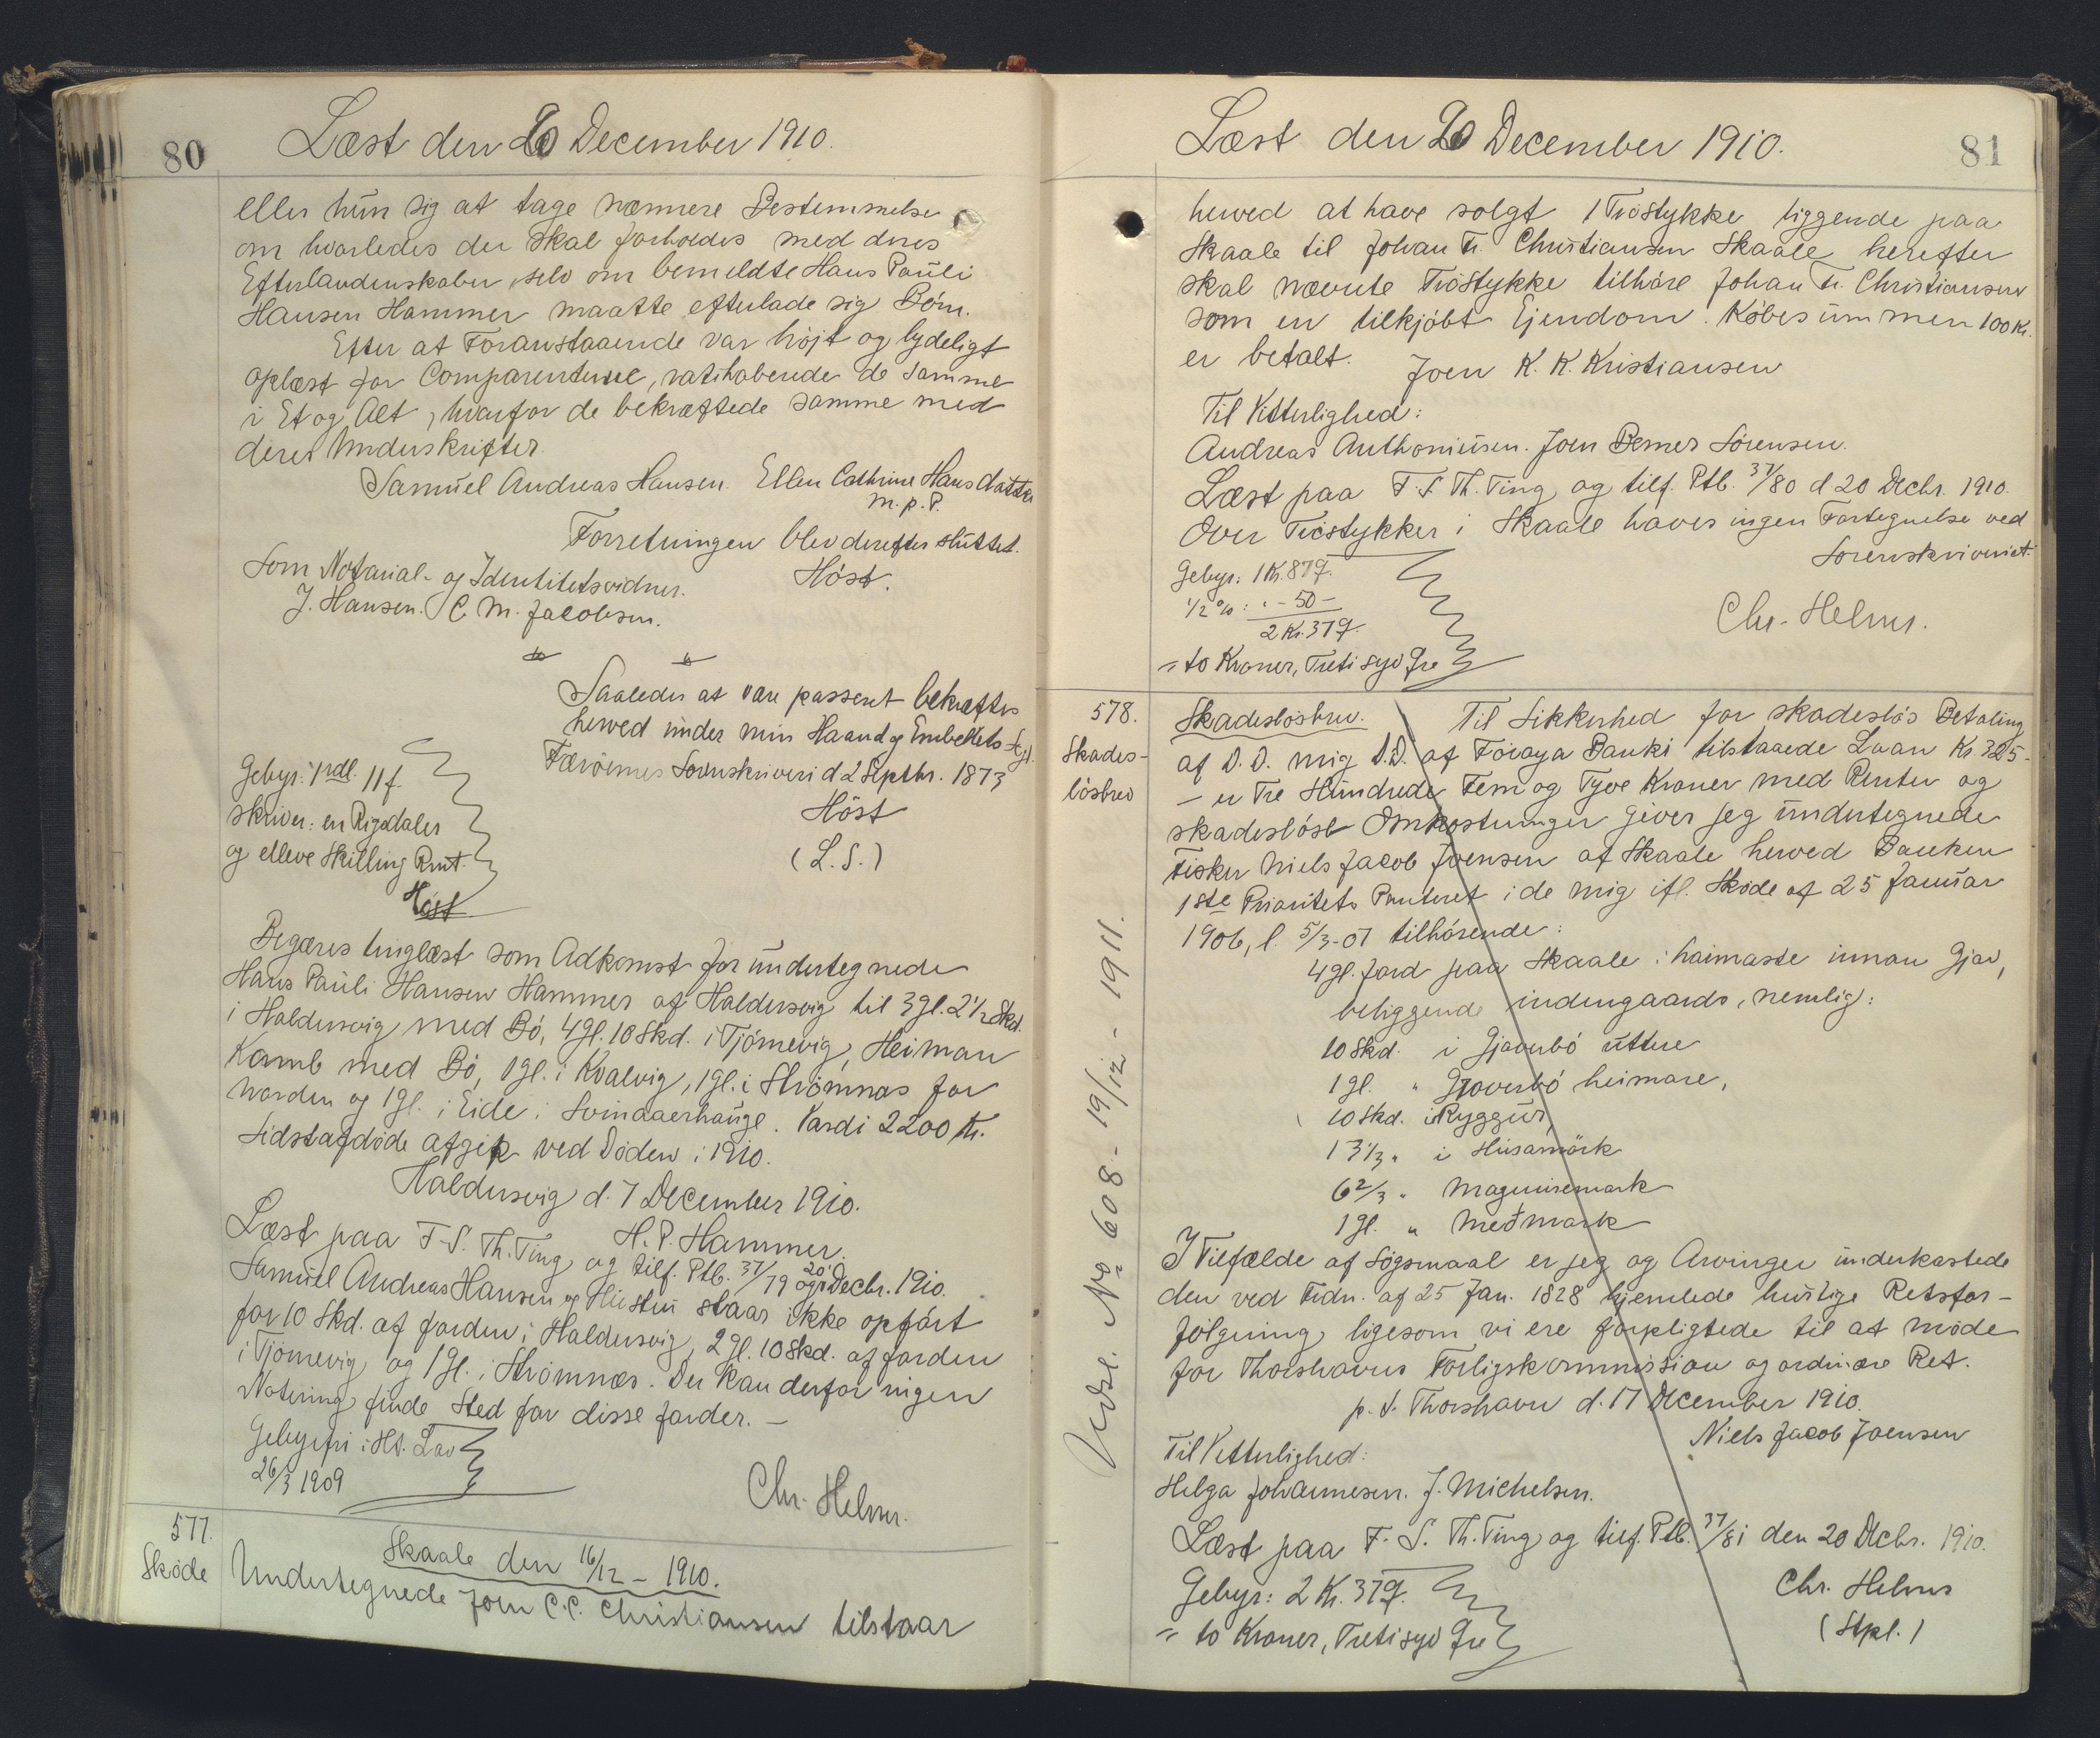 80
Læst den 20 December 1910.
eller hun sig at tage nærmere Bestemmelse
om hvorledes der skal forholdes med deres
Efterladenskaber, selv om bemeldte Hans Pauli
Hansen Hammer maatte efterlade sig Børn.
Efter at Foranstaaende var højt og lydeligt
oplæst for Comparenterne, ratihaberede de samme
i Et og Alt, hvorfor de bekræftede samme med
deres Underskrifter.
Samuel Andreas Hansen. Ellen Cathrine Hansdatter
m. p. P.
Forretningen blev derefter sluttet.
Som Notarial- og Identitetsvidner.
Höst.
J. Hansen. C. M. Jacobsen.
Saaledes at være passeret bekræftes
herved under min Haand og Embedets Segl.
Færöernes Sorenskriveri d 2 Septbr. 1873
Höst
(L. S.)
Gebyr: 1 rdl. 11 f.
skriver: en Rigsdaler
og elleve Skilling Rmt.
Höst
Begæres tinglæst som Adkomst for undertegnede
Hans Pauli Hansen Hammer af Haldersvig til 3 gl. 2 1/2 Skd.
i Haldersvig med Bö, 4 gl. 10 Skd. i Tjörnevig, Heiman
Kamb med Bö, 1 gl. i Kvalvig, 1 gl. i Strömnæs for
norden og 1 gl. i Eide i Svinaaerhauge. Værdi 2200 Kr.
Sidstafdöde afgik ved Döden i 1910.
Haldersvig d. 7 December 1910.
H. P. Hammer.
Læst paa F. S. Th. Ting og tilf. Ptb. 37/79 og 20' Decbr. 1910.
Samuel Andreas Hansen og Hustru staar ikke opfört
for 10 Skd. af Jorden i Haldersvig, 2 gl. 10 Skd. af Jorden
i Tjörnevig og 1 gl. i Strömnæs. Der kan derfor ingen
Notering finde Sted for disse Jorder. –
Gebyrfri i Hl. Lov
26/3 1909
Chr. Helms.
577.
Sköde
Skaale den 16/12 – 1910.
Undertegnede Joen C. C. Christiansen tilstaar
81
Læst den 20 December 1910.
herved at have solgt 1 Tröstykke liggende paa
Skaale til Johan Fr. Christiansen Skaale, herefter
skal nævnte Tröstykke tilhöre Johan Fr. Christiansen
som en tilkjöbt Ejendom. Köbesummen 100 Kr.
er betalt.
Joen K. K. Kristiansen
Til Vitterlighed:
Andreas Anthoniusen. Joen Berner Sörensen.
Læst paa F. S. Th. Ting og tilf. Ptb. 37/80 d 20 Decbr. 1910.
Over Tröstykker i Skaale haves ingen Fortegnelse ved
Sorenskriveriet.
Gebyr: 1 Kr. 87 Ø.
1/2 %: - 50 -
2 Kr. 37 Ø.
= to Kroner, Tretisyv Øre
Chr. Helms.
578.
Skades-
lösbrev
Skadeslösbrev. Til Sikkerhed for skadeslös Betaling
af D. D. mig D. D. af Föroya Banki tilstaaede Laan Kr 325.
– er Tre Hundrede Fem og Tyve Kroner med Renter og
skadeslöse Omkostninger giver jeg undertegnede
Fisker Niels Jacob Joensen af Skaale herved Banken
1ste Prioritets Panteret i de mig ifl. Sköde af 25 Januar
1906, l. 5/3-07 tilhörende:
4 gl. Jord paa Skaale i haimaste innan Gjav,
beliggende indengaards, nemlig:
10 Skd. i Gjaverbö uttere
1 gl. " Gjoverbö heimare,
10 Skd. i Ryggur,
13 1/3 " i Husamörk
6 2/3 " Magnusemark
1 gl. " Meðmark
I Tilfælde af Sögsmaal er jeg og Arvinger underkastede
den ved Frdn. af 25 Jan. 1828 hjemlede hurtige Retsfor-
fölgning, ligesom vi ere forpligtede til at möde
for Thorshavns Forligskommission og ordinære Ret.
p. t. Thorshavn d. 17 December 1910.
Niels Jacob Joensen
Til Vitterlighed:
Helga Johannesen. J. Michelsen.
Læst paa F. S. Th. Ting og tilf. Ptb. 37/81 den 20 Decbr. 1910.
Gebyr: 2 Kr. 37 Ø.
= to Kroner, Tretisyv Øre
Chr. Helms
(Stpl.)
Udsl. No 608 - 19/12 - 1911.